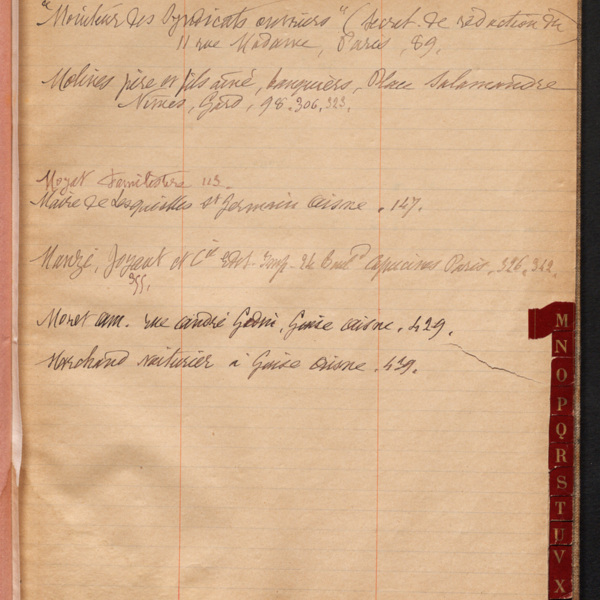 "Moniteur des Syndicats ouvriers" (secret. de rédaction du)
11 rue Madame, Paris, 89.
Molines père et fils aîné, banquiers, Place Salamandre
Nîmes, Gard, 98. 306, 323.
Moyat 113.
Maire de Lesquielles St Germain Aisne. 147.
Manzi, Joyant et Cie Edit. Imp. 24 Bould Capucines Paris. 326, 342,
355.
Moret am. rue André Godin, Guise Aisne. 429.
Marchand voiturier à Guise Aisne. 429.
M
N
O
P
Q
R
S
T
U
V
X